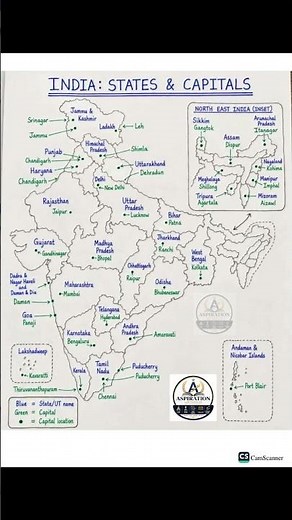 INDIA: STATES & CAPITALS
NORTH EAST INDIA (INSET)
Sikkim
Gangtok
Arunachal
Pradesh
Itanagar
Assam
Dispur
Nagaland
Kohima
Meghalaya
Shillong
Manipur
Imphal
Tripura
Agartala
Mizoram
Aizawl
Jammu &
Kashmir
Srinagar
Jammu
Ladakh
Leh
Himachal
Pradesh
Shimla
Punjab
Chandigarh
Haryana
Chandigarh
Uttarakhand
Dehradun
Delhi
New Delhi
Rajasthan
Jaipur
Uttar
Pradesh
Lucknow
Bihar
Patna
Gujarat
Gandhinagar
Madhya
Pradesh
Bhopal
Jharkhand
Ranchi
West
Bengal
Kolkata
Chhattisgarh
Raipur
Odisha
Bhubaneswar
Dadra &
Nagar Haveli
and
Daman & Diu
Daman
Maharashtra
Mumbai
Telangana
Hyderabad
Goa
Panaji
Karnataka
Bengaluru
Andhra
Pradesh
Amaravati
Lakshadweep
Kavaratti
Kerala
Thiruvananthapuram
Tamil
Nadu
Chennai
Puducherry
Puducherry
Andaman &
Nicobar Islands
Port Blair
Blue = State/UT name
Green = Capital
= Capital location
ASPIRATION
ASPIRATION
CS CamScanner